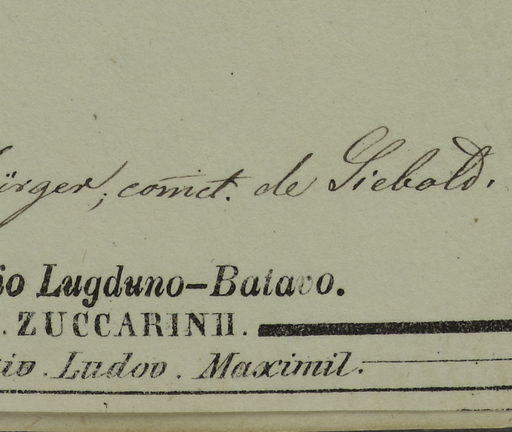 ürger; com̄ct. de Siebold.
io Lugduno-Batavo.
. ZUCCARINII.
io. Ludov. Maximil.